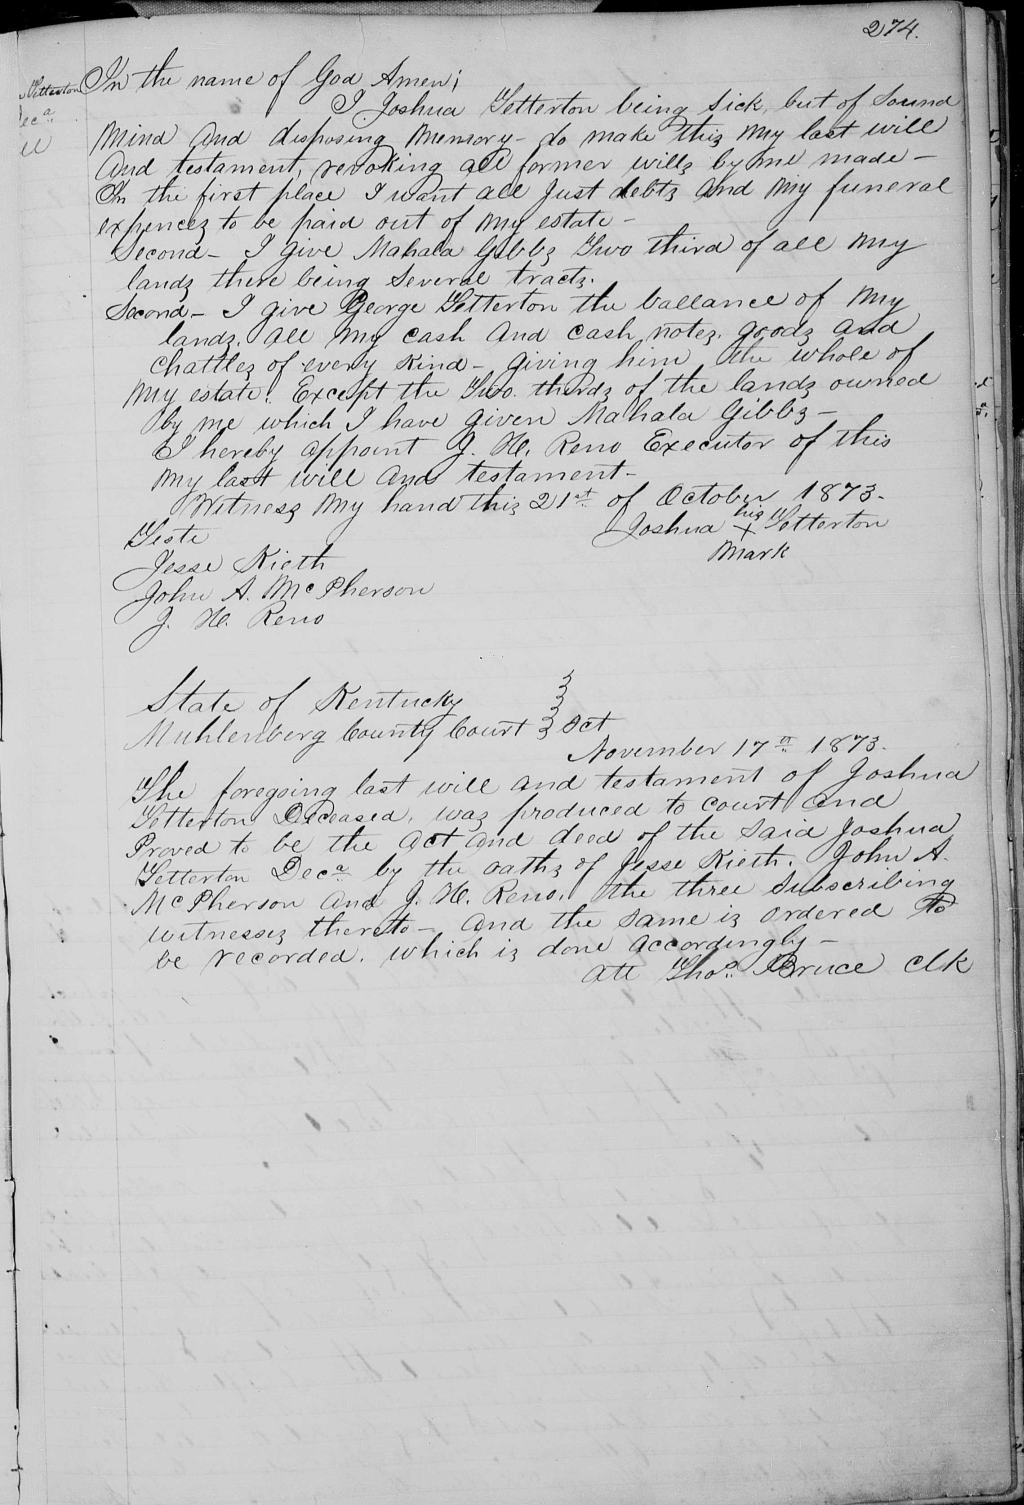 274.
In the name of God Amen;
Tetterton
I Joshua Tetterton being sick, but of sound
mind and disposing memory - do make this my last will
and testament, revoking all former wills by me made -
In the first place I want all Just debts and my funeral
expences to be paid out of my estate -
Second - I give Mahala Gibbs Two third of all my
lands there being several tracts.
Second - I give George Tetterton the ballance of my
lands, all my cash and cash notes, goods and
chattles of every kind - giving him the whole of
my estate. Except the Two thirds of the lands owned
by me which I have given Mahala Gibbs -
I hereby appoint J. H. Reno Executor of this
my last will and testament -
Witness my hand this 21st of October 1873 -
Joshua his X Tetterton
mark
Teste
Jesse Kieth
John A. McPherson
J. H. Reno
State of Kentucky
Muhlenberg County Court Sct
November 17th 1873.
The foregoing last will and testament of Joshua
Tetterton Deceased, was produced to court and
Proved to be the act and deed of the said Joshua
Tetterton Decd by the oaths of Jesse Kieth. John A.
McPherson and J. H. Reno, the three subscribing
witnesses thereto - and the same is ordered to
be recorded. which is done accordingly -
att Thos. Bruce Clk